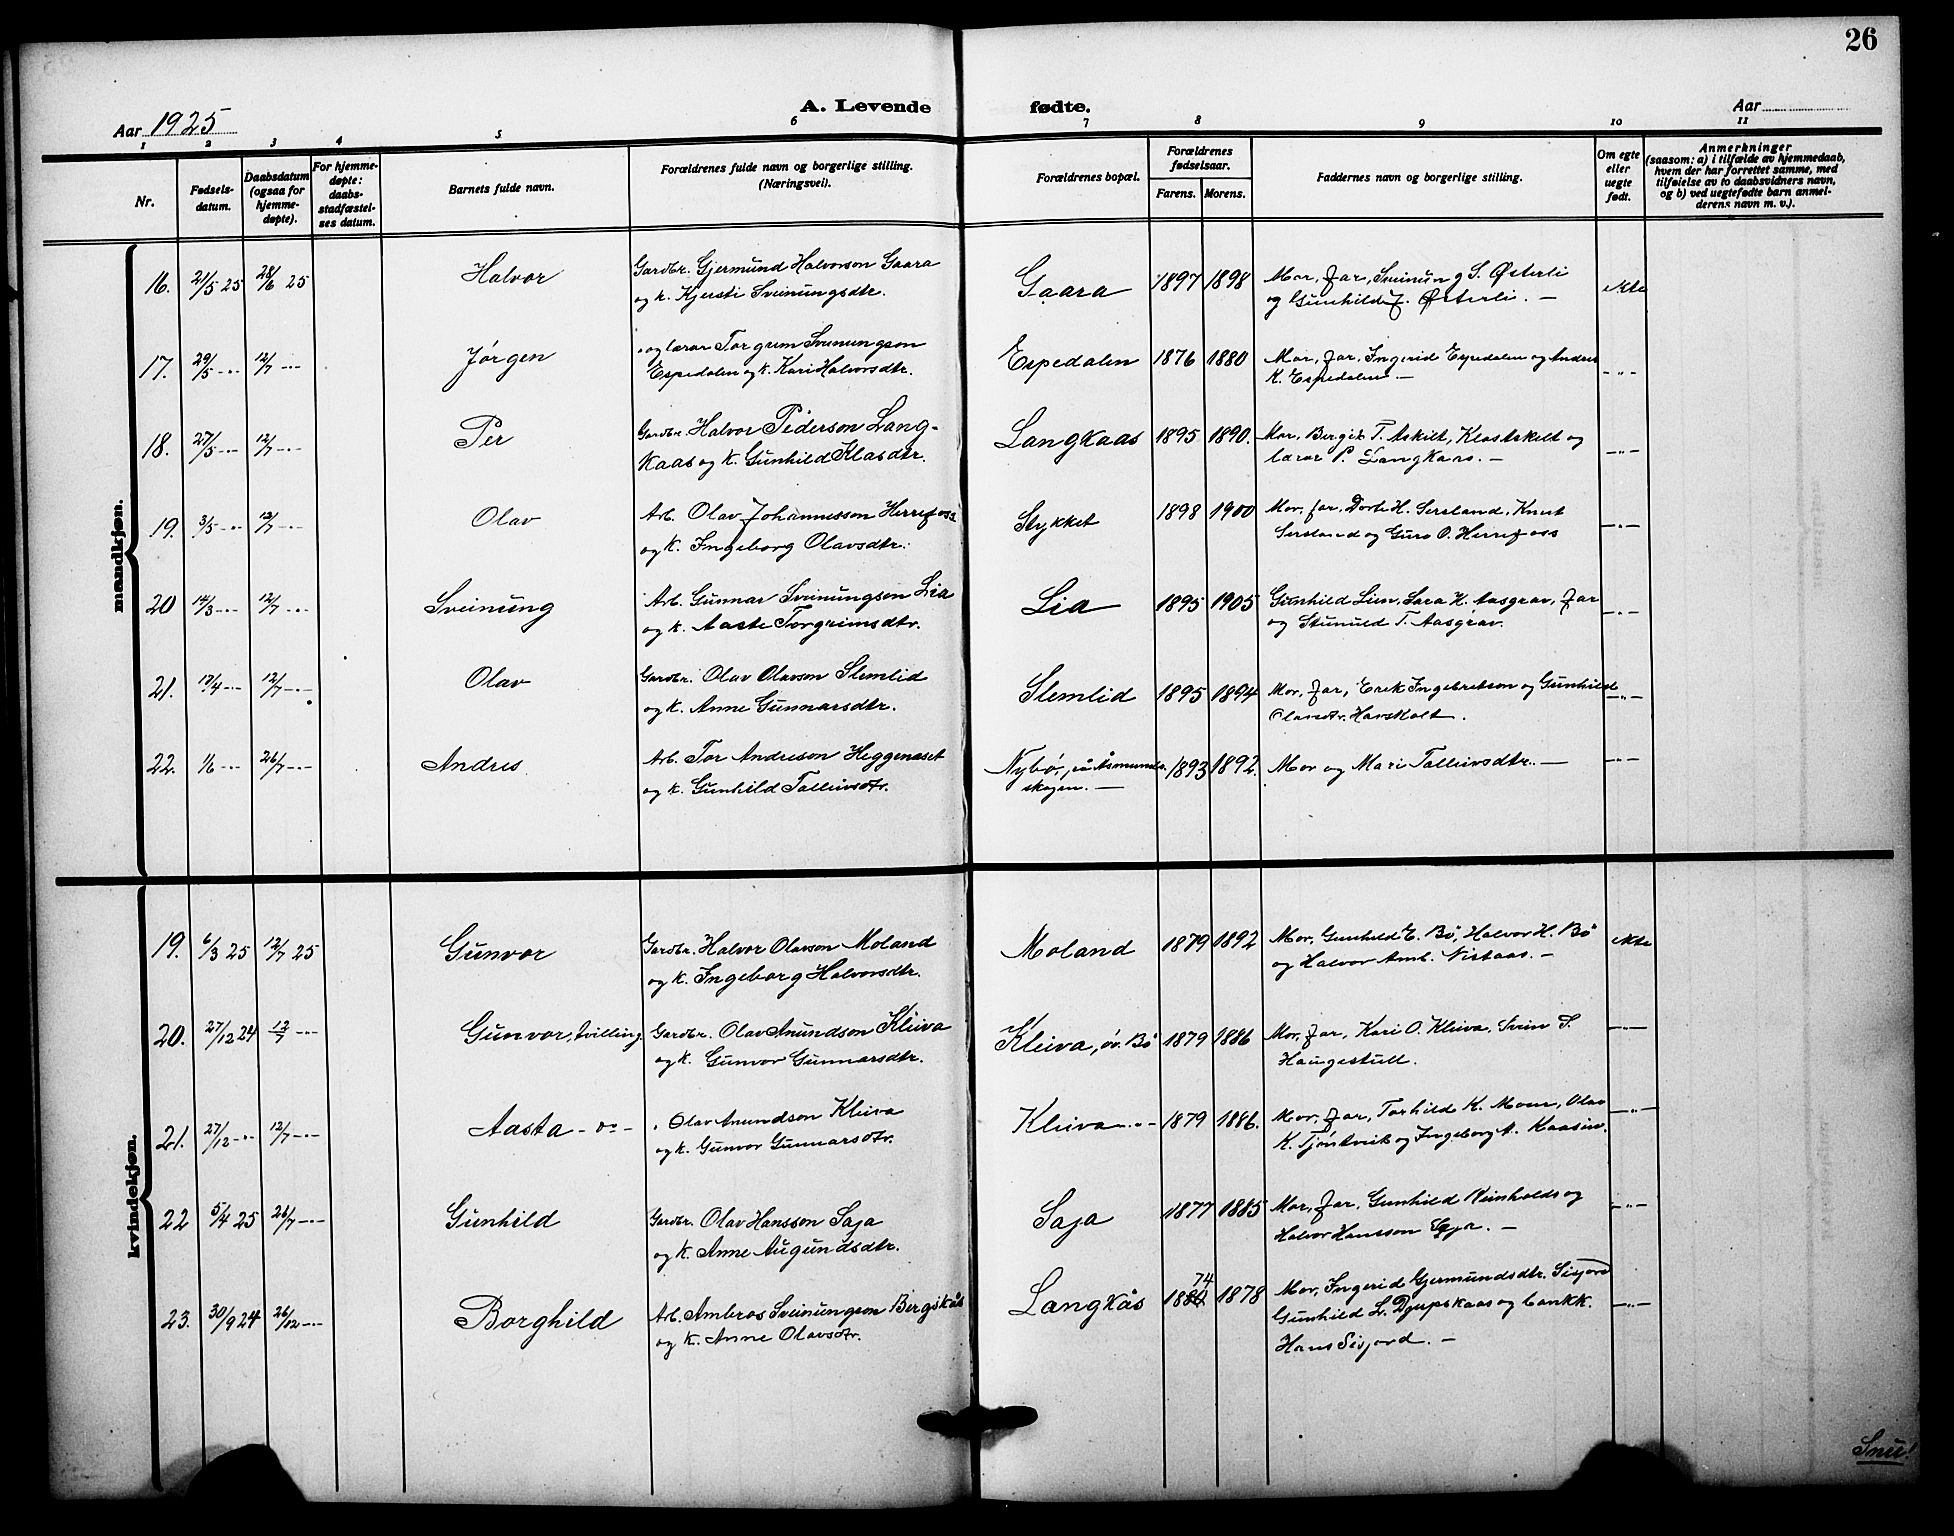 26
A. Levende fødte.
Aar 1925
Aar
1 2 3 4 5 6 7 8 9 10 11
Nr.
Fødsels-
datum.
Daabsdatum
(ogsaa for
hjemme-
døpte).
For hjemme-
døpte:
daabs-
stadfæstel-
ses datum.
Barnets fulde navn.
Forældrenes fulde navn og borgerlige stilling.
(Næringsvei).
Forældrenes bopæl.
Forældrenes
fødselsaar.
Farens. Morens.
Faddernes navn og borgerlige stilling.
Om egte
eller
uegte
født.
Anmerkninger
(saasom: a) i tilfælde av hjemmedaab,
hvem der har forrettet samme, med
tilføielse av to daabsvidners navn,
og b) ved uegtefødte barn anmel-
derens navn m. v.).
mandkjøn.
16. 21/5 25 28/6 25 Halvor Gardbr. Gjermund Halvorson Gaara Gaara 1897 1898 Mor, far, Sveinung S. Østerli ekte
og k. Kjersti Sveinungsdtr. og Gunhild J. Østerli. —
17. 29/5 -"- 12/7 -"- Jørgen " og lærar Torgrim Sveinungson Espedalen 1876 1880 Mor, far, Ingerid Espedalen og Andres -"-
Espedalen og k. Kari Halvorsdtr. K. Espedalen —
18. 27/5 -"- 12/7 -"- Per Gardbr. Halvor Pederson Lang- Langkaas 1895 1890. Mor, Bergit T. Askilt, Klas Askilt og -"-
kaas og k. Gunhild Klasdtr. lærar P. Langkaas. —
19. 3/5 -"- 12/7 -"- Olav Arb. Olav Johannesson Herrefoss Stykket 1898 1900 Mor, far, Dorte H. Sersland, Knut -"-
og k. Ingeborg Olavsdtr. Sersland og Guro O. Herrefoss
20 14/3 -"- 12/7 -"- Sveinung Arb. Gunnar Sveinungson Lia Lia 1895 1905 Gunhild Lien, Sara K. Aasgrav, far -"-
og k. Aaste Torgrimsdtr. og T. Aasgrav.
21. 17/4 -"- 12/7 -"- Olav Gardbr. Olav Olavson Slemlid Slemlid 1895 1894 Mor, far, Erek Ingebretson og Gunhild -"-
og k. Anne Gunnarsdtr. Olavsdtr. Havskolt.
22. 1/6 -"- 26/7 -"- Andres Arb. Tor Andreson Heggenaset Nybø, på Åsmunds- 1893 1892. Mor og Mari Tolleivsdtr. — -"-
og k. Gunhild Tolleivsdtr. skogen. —
kvindekjøn.
19. 6/3 25 12/7 25 Gunvor Gardbr. Halvor Olavson Moland Moland 1879 1892 Mor, Gunhild E. Bø, Halvor H. Bø ekte
og k. Ingeborg Halvorsdtr. og Halvor Amb. Nistaas. —
20. 27/12 24 12/7 -"- Gunvor, tvilling Gardbr. Olav Anundson Kleiva Kleiva, øv. Bø 1879 1886 Mor, far, Kari O. Kleiva, Svein S. -"-
og k. Gunvor Gunnarsdtr. Haugestull.
21. 27/12 -"- 12/7 -"- Aasta -"- " Olav Anundson Kleiva Kleiva -"- 1879 1886. Mor, far, Torhild K. Moen, Olav -"-
og k. Gunvor Gunnarsdtr. K. Tjøntveit og Ingeborg A. Kaasin.
22 5/4 25 26/7 -"- Gunhild Gardbr. Olav Hansson Saga Saga 1877 1885 Mor, far, Gunhild Reinholds og -"-
og k. Anne Augundsdtr. Halvor Hansson —
23. 30/9 24 26/12 -"- Borghild Arb. Ambros Sveinungson Bergskås Langkås 1884 74 1878 Mor, Ingerid Gjermundsdtr. Sisjord -"-
og k. Anne Olavsdtr. Gunhild L. Djupskaas og bankk.
Hans Sisjord. —
Snu!